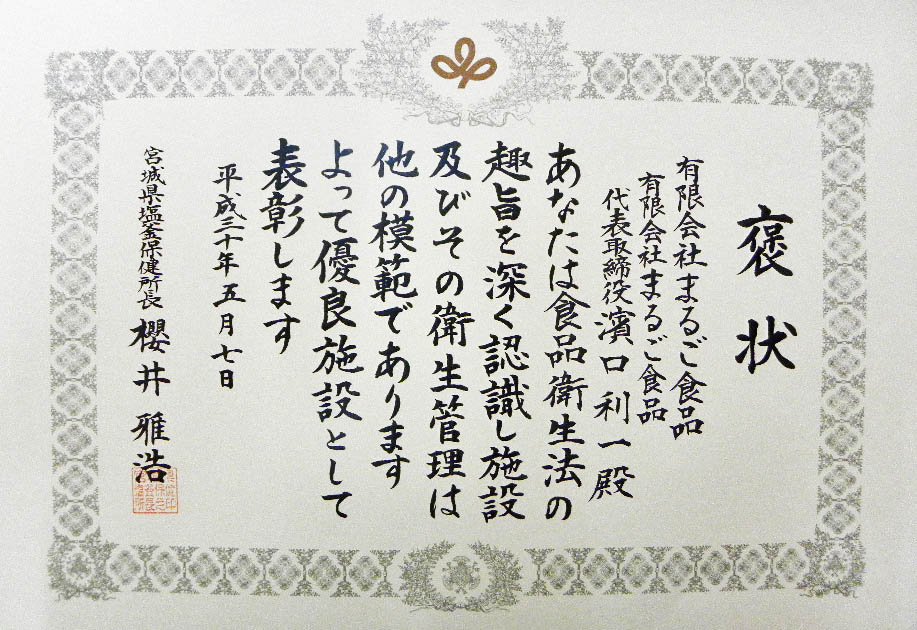 褒状
有限会社まるご食品
有限会社まるご食品
代表取締役濱口利一殿
あなたは食品衛生法の
趣旨を深く認識し施設
及びその衛生管理は
他の模範であります
よって優良施設として
表彰します
平成三十年五月七日
宮城県塩釜保健所長 櫻井雅浩